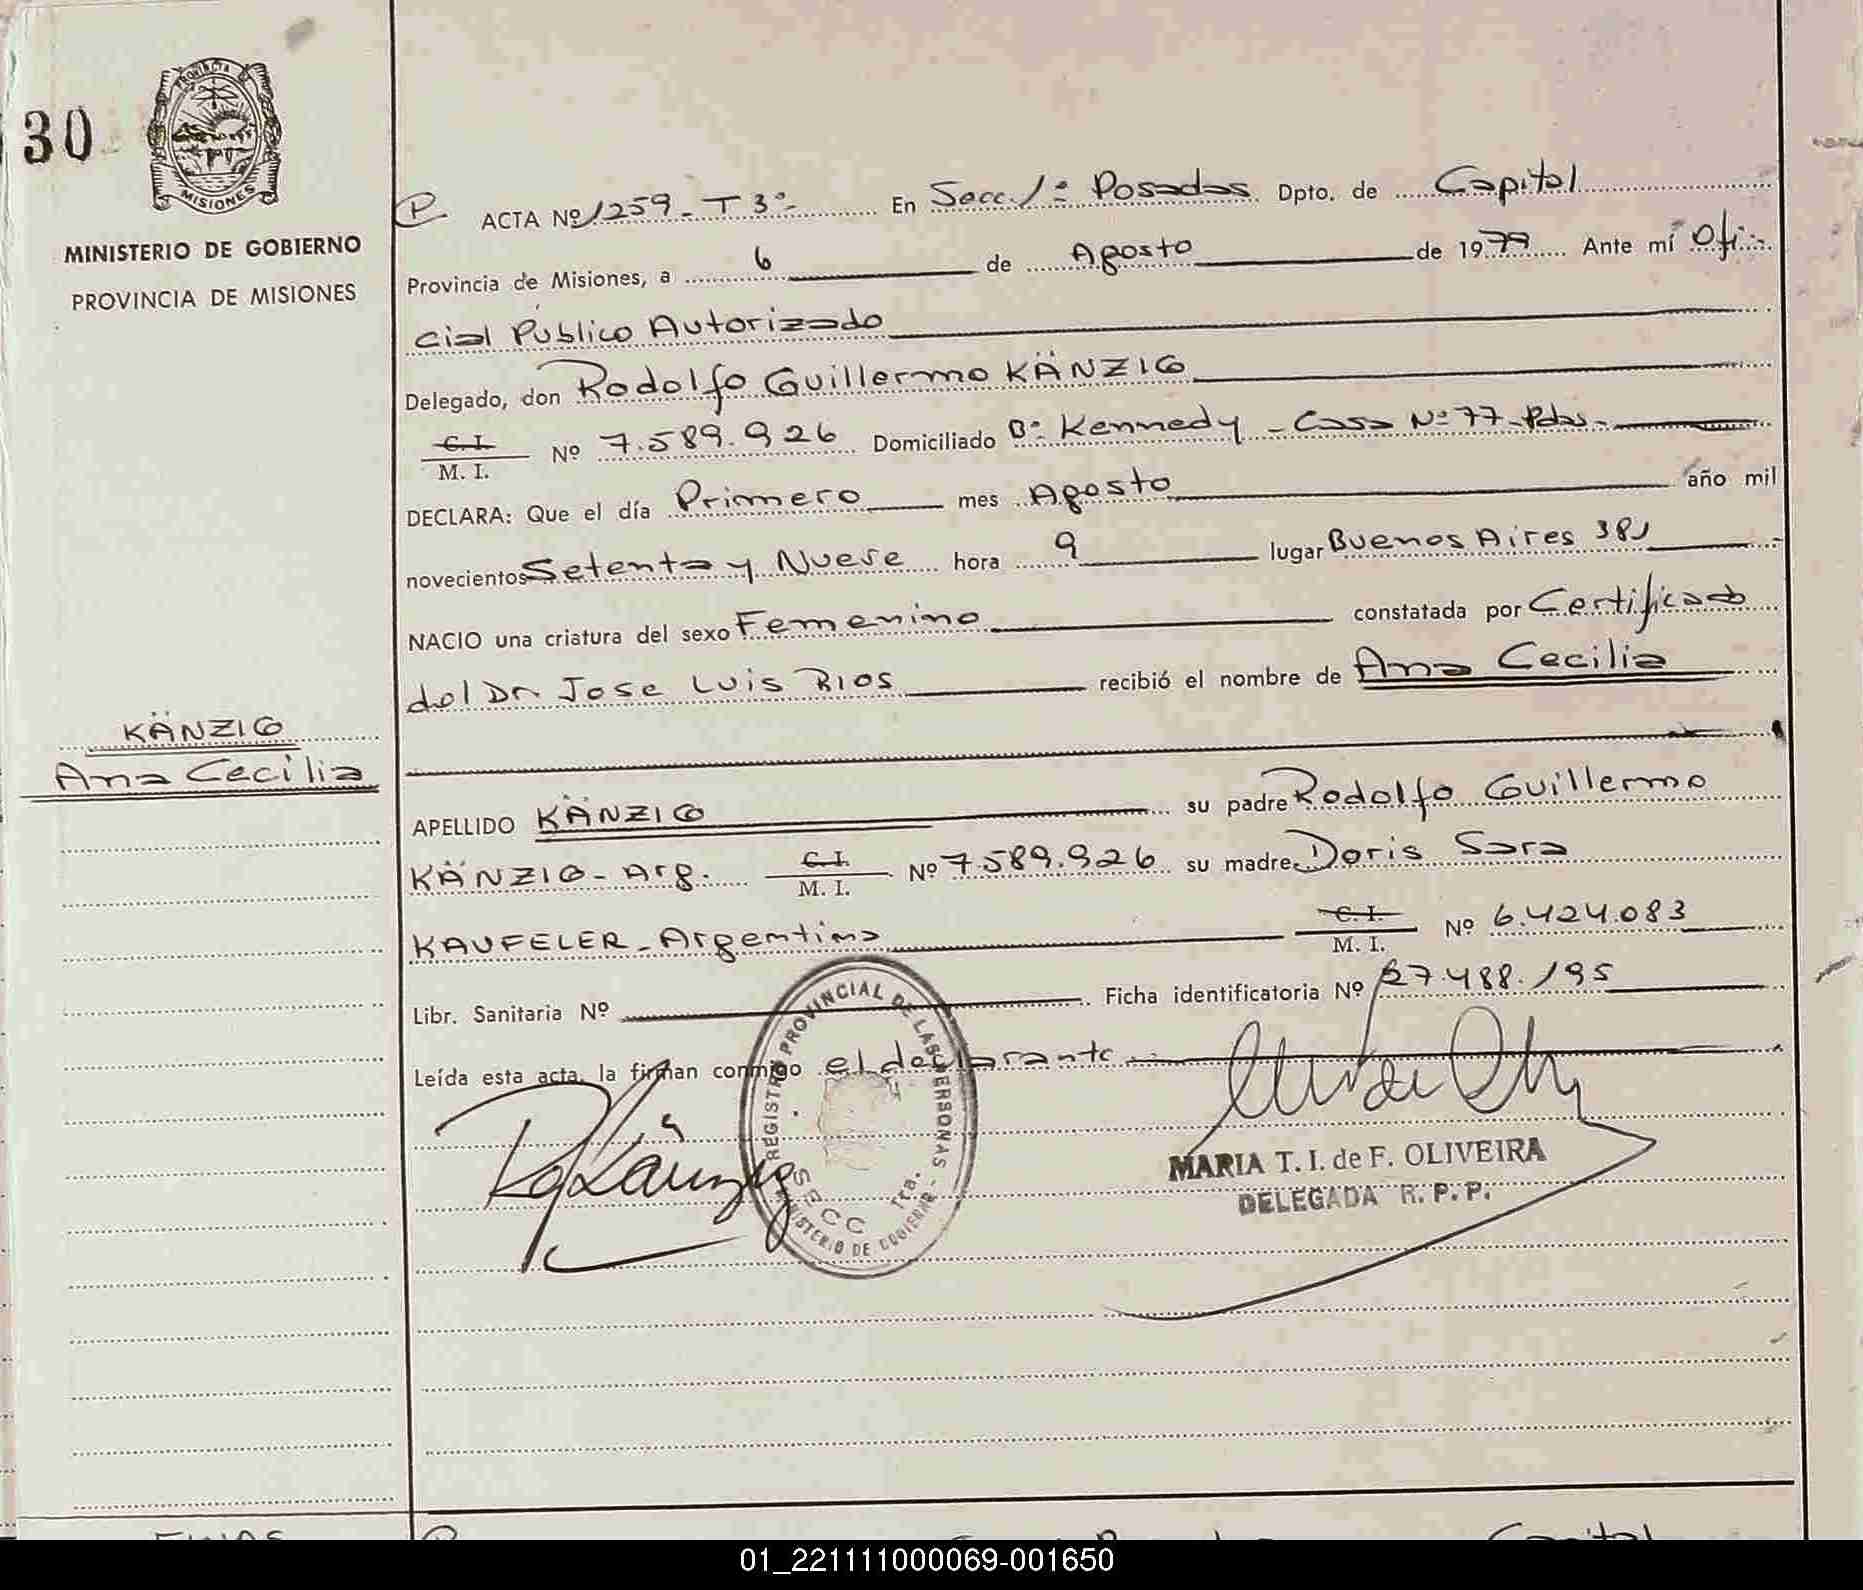 30
PROVINCIA DE
MISIONES
MINISTERIO DE GOBIERNO
PROVINCIA DE MISIONES
KÄNZIG
Ana Cecilia
P ACTA Nº 1259 - T 3º - En Secc. 1ª Posadas Dpto. de Capital
Provincia de Misiones, a 6 de Agosto de 1979 Ante mí Ofi-
cial Público Autorizado
Delegado, don Rodolfo Guillermo KÄNZIG
C.I.
M. I. Nº 7.589.926 Domiciliado Bº Kennedy - Casa Nº 77 - Pdas -
DECLARA: Que el día Primero mes Agosto año mil
novecientos Setenta y Nueve hora 9 lugar Buenos Aires 381
NACIO una criatura del sexo Femenino constatada por Certificado
del Dr Jose Luis Rios recibió el nombre de Ana Cecilia
APELLIDO KÄNZIG su padre Rodolfo Guillermo
KÄNZIG - Arg. C.I. M. I. Nº 7.589.926 su madre Doris Sara
KAUFELER - Argentina C.I. M. I. Nº 6.424.083
Libr. Sanitaria Nº Ficha identificatoria Nº 27.488.195
Leída esta acta, la firman conmigo el declarante
REGISTRO PROVINCIAL DE LAS PERSONAS -
SECC 1ra.
MINISTERIO DE GOBIERNO
MARIA T. I. de F. OLIVEIRA
DELEGADA R. P. P.
01_221111000069-001650